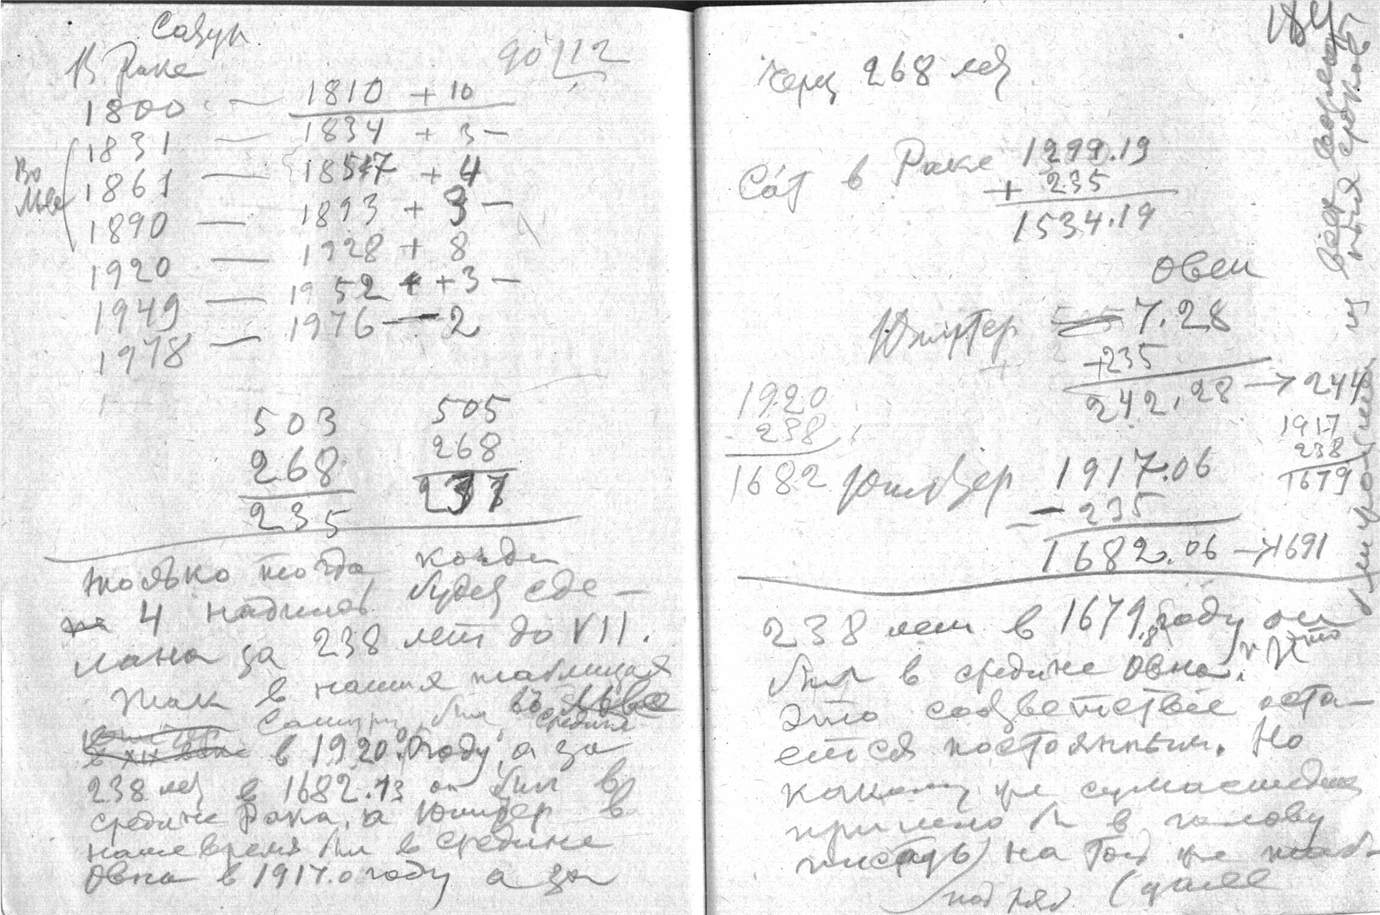 Сатурн
В Раке
90 112
1800 — 1810 + 10
1831 — 1834 + 3 —
1861 — 1857 + 4
Во Льве
1890 — 1893 + 3 —
1920 — 1928 + 8
1949 — 1952 + 3 —
1978 — 1976 — 2
503 505
268 268
235 237
только тогда когда
4 надпись будет сде-
лана за 238 лет до VII.
Так в наших таблицах
Сатурн был в
средине
в 1920.0 году, а за
238 лет в 1682.13 он был в
средине Рака, а Юпитер в
наше время был в средине
Овна в 1917.0 году а за
184
Через 268 лет
Сат в Раке 1299.19
+ 235
1534.19
Овен
Юпитер 7.28
+235
242.28 → 244
1920
- 238
1682
1917
238
1679
Юпитер 1917.06
— 235
1682.06 → 1691
238 лет в 1679.8 году он
был в средине Овна.
Это соответствие оста-
ется постоянным. Но
какому же сумасшедшему
пришло бы в голову
писать на той же
под ряд (далее